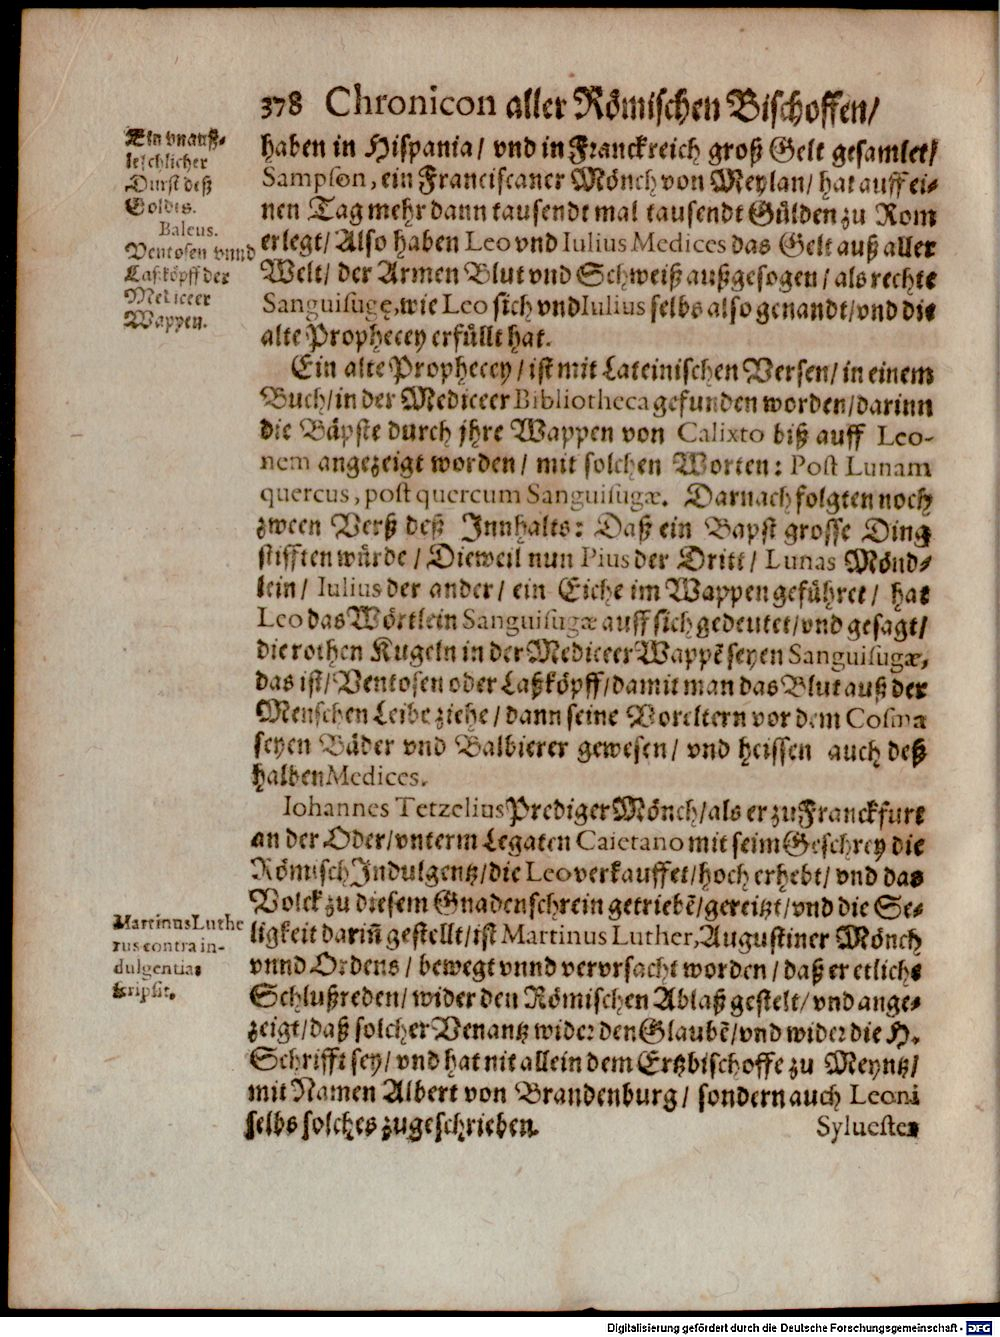 378 Chronicon aller Römischen Bischoffen/
Ein vnauß-
leschlicher
Durst deß
Goldes.
Baleus.
Ventosen vnnd
Laßköpff der
Mediceer
Wappen.
haben in Hispania/ vnd in Franckreich groß Gelt gesamlet/
Sampson, ein Franciscaner Mönch von Meylan/ hat auff ei-
nen Tag mehr dann tausendt mal tausendt Gülden zu Rom
erlegt/ Also haben Leo vnd Iulius Medices das Gelt auß aller
Welt/ der Armen Blut vnd Schweiß außgesogen/ als rechte
Sanguisugę, wie Leo sich vnd Iulius selbs also genandt/ vnd die
alte Prophecey erfüllt hat.
Ein alte Prophecey/ ist mit Lateinischen Versen/ in einem
Buch/ in der Mediceer Bibliotheca gefunden worden/ darinn
die Bäpste durch jhre Wappen von Calixto biß auff Leo-
nem angezeigt worden/ mit solchen Worten: Post Lunam
quercus, post quercum Sanguisugæ. Darnach folgten noch
zween Verß deß Innhalts: Daß ein Bapst grosse Ding
stifften würde/ Dieweil nun Pius der Dritt/ Lunas Mönd-
lein/ Iulius der ander/ ein Eiche im Wappen geführet/ hat
Leo das Wörtlein Sanguisugæ auff sich gedeutet/ vnd gesagt/
die rothen Kugeln in der Mediceer Wappē seyen Sanguisugæ,
das ist/ Ventosen oder Laßköpff/ damit man das Blut auß der
Menschen Leibe ziehe/ dann seine Voreltern vor dem Cosma
seyen Bäder vnd Balbierer gewesen/ vnd heissen auch deß
halben Medices.
Iohannes Tetzelius Prediger Mönch/ als er zu Franckfurt
an der Oder/ vnterm Legaten Caietano mit seim Geschrey die
Römisch Indulgentz/ die Leo verkauffet/ hoch erhebt/ vnd das
Volck zu diesem Gnadenschrein getriebē/ gereitzt/ vnd die Se-
ligkeit dariñ gestellt/ ist Martinus Luther, Augustiner Mönch
vnnd Ordens/ bewegt vnnd vervrsacht worden/ daß er etliche
Schlußreden/ wider den Römischen Ablaß gestelt/ vnd ange-
zeigt/ daß solcher Venantz wider den Glaubē/ vnd wider die H.
Schrifft sey/ vnd hat nit allein dem Ertzbischoffe zu Meyntz/
mit Namen Albert von Brandenburg/ sondern auch Leoni
selbs solches zugeschrieben.
Martinus Luthe
rus contra in-
dulgentias
scripsit.
Syluester
Digitalisierung gefördert durch die Deutsche Forschungsgemeinschaft - DFG